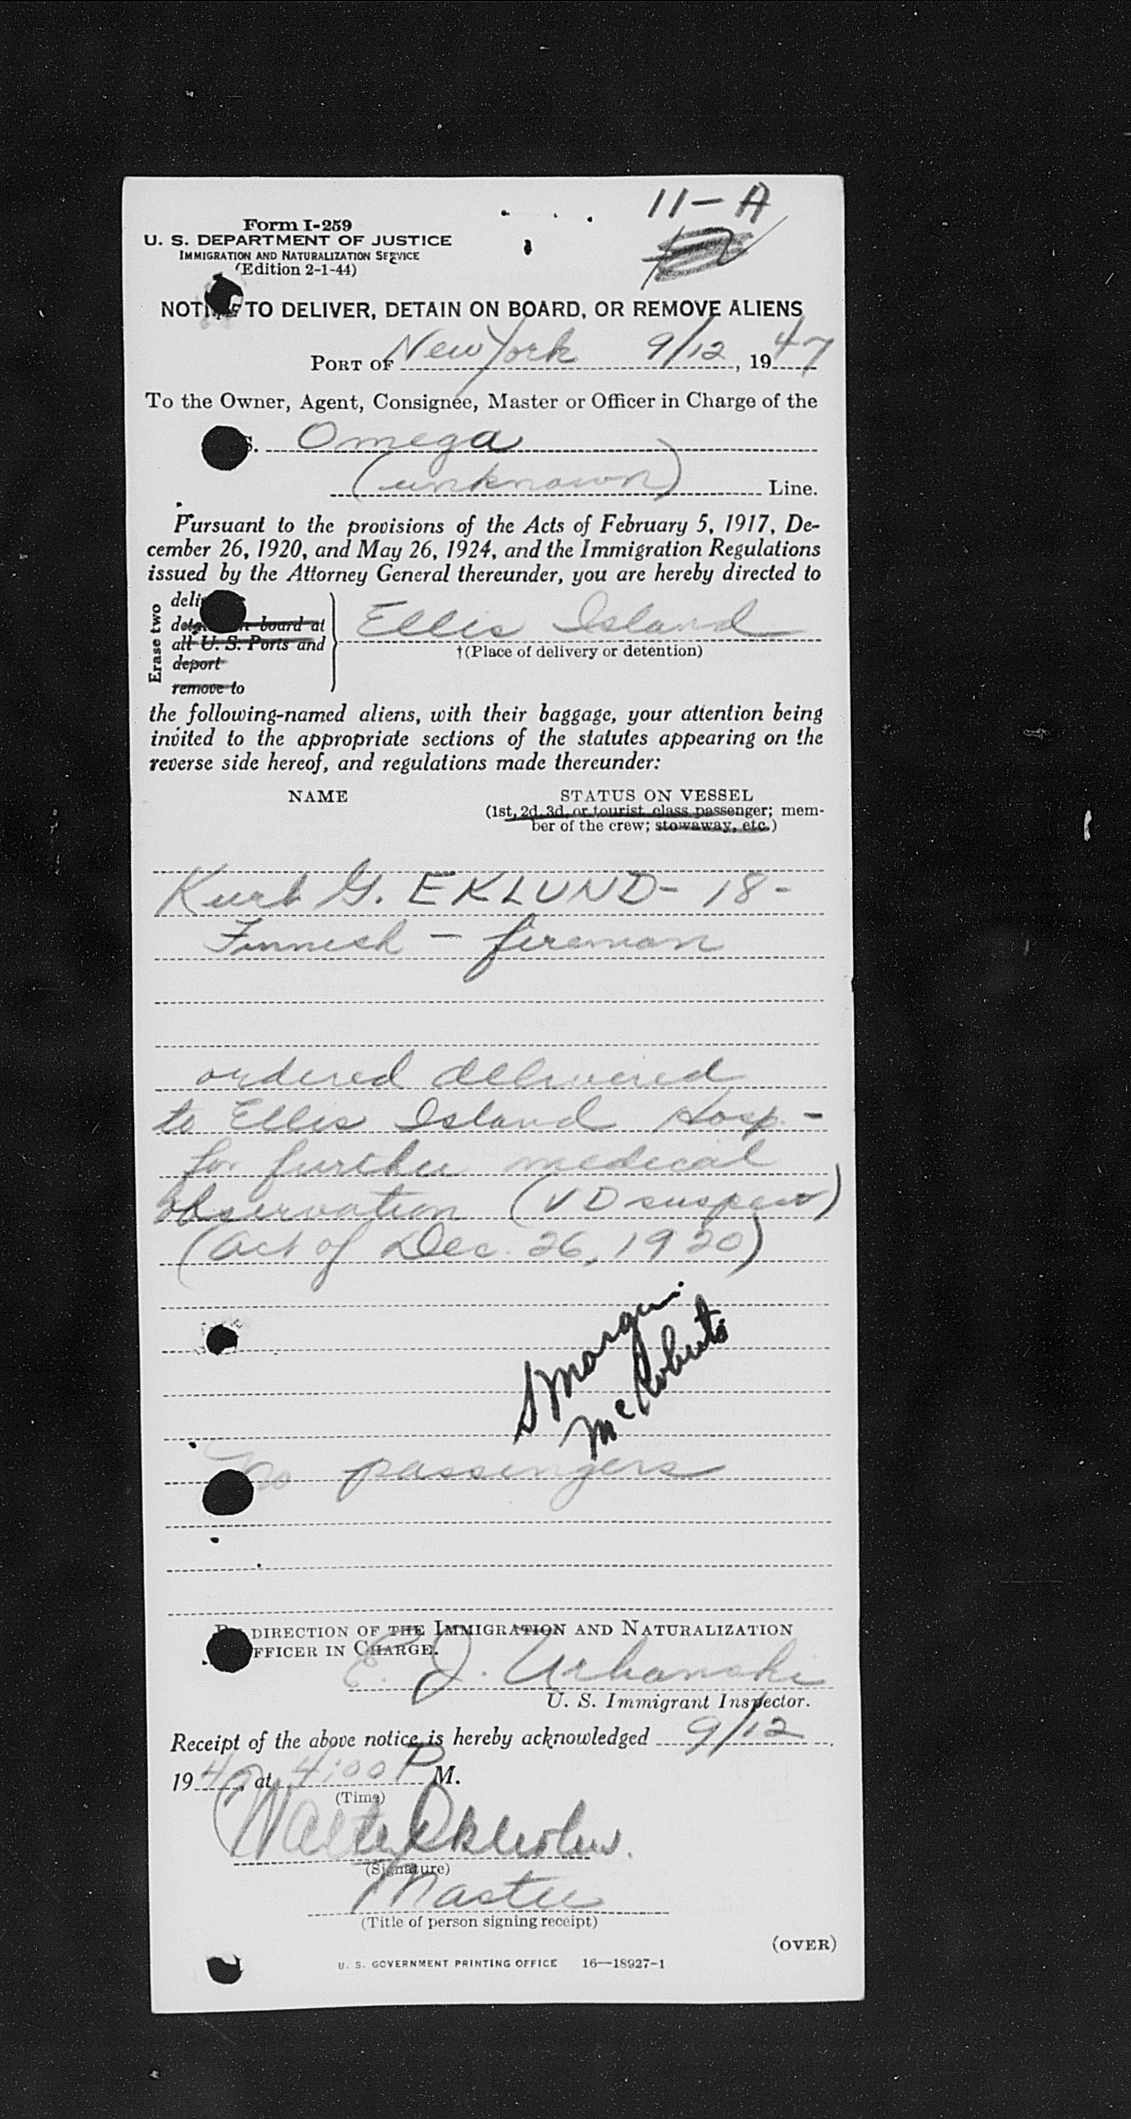 11-A
Form I-259
U. S. DEPARTMENT OF JUSTICE
IMMIGRATION AND NATURALIZATION SERVICE
(Edition 2-1-44)
NOTICE TO DELIVER, DETAIN ON BOARD, OR REMOVE ALIENS
PORT OF New York 9/12, 1947
To the Owner, Agent, Consignee, Master or Officer in Charge of the
S. Omega
(unknown) Line.
Pursuant to the provisions of the Acts of February 5, 1917, De-
cember 26, 1920, and May 26, 1924, and the Immigration Regulations
issued by the Attorney General thereunder, you are hereby directed to
Erase two
deli
det on board at
all U. S. Ports and
deport
remove to
Ellis Island
†(Place of delivery or detention)
the following-named aliens, with their baggage, your attention being
invited to the appropriate sections of the statutes appearing on the
reverse side hereof, and regulations made thereunder:
NAME STATUS ON VESSEL
(1st, 2d, 3d, or tourist class passenger; mem-
ber of the crew; stowaway, etc.)
Kurt G. EKLUND - 18 -
Finnish - fireman
ordered delivered
to Ellis Island Hosp -
for further medical
observation (VD suspect)
(Act of Dec. 26, 1920)
McRoberts
No passengers
BY DIRECTION OF THE IMMIGRATION AND NATURALIZATION
OFFICER IN CHARGE.
E. J. Urbanski
U. S. Immigrant Inspector.
Receipt of the above notice is hereby acknowledged 9/12
1947, at 4:00 P M.
(Time)
Walter
(Signature)
Master
(Title of person signing receipt)
(OVER)
U. S. GOVERNMENT PRINTING OFFICE 16—18927-1